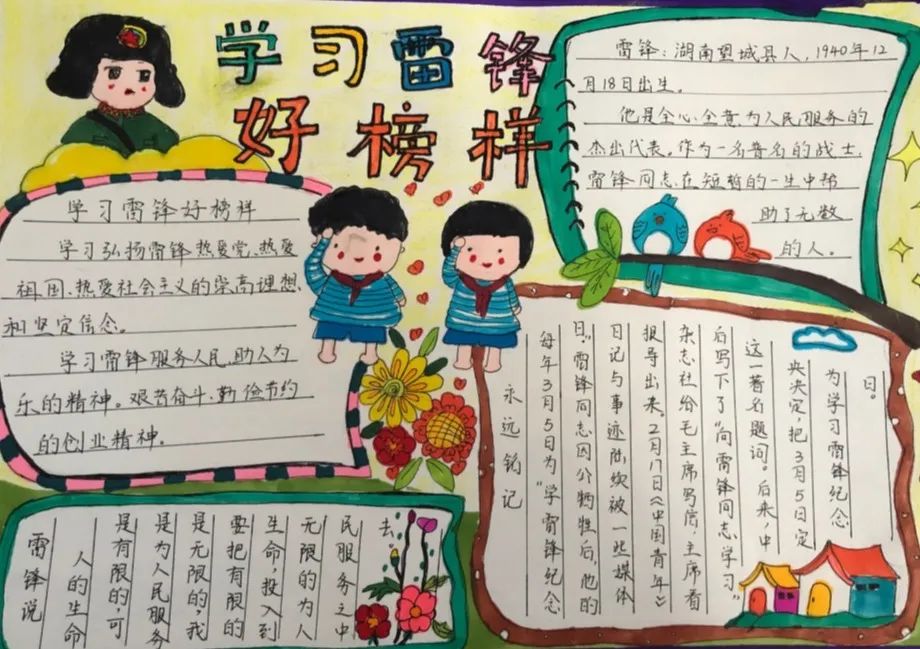 学习雷锋
好榜样
学习雷锋好榜样
学习弘扬雷锋热爱党、热爱
祖国、热爱社会主义的崇高理想
和坚定信念。
学习雷锋服务人民、助人为
乐的精神。艰苦奋斗、勤俭节约
的创业精神。
雷锋:湖南望城县人,1940年12
月18日出生。
他是全心全意为人民服务的
杰出代表。作为一名普名的战士,
雷锋同志在短暂的一生中帮
助了无数
的人。
永远铭记
每年3月5日为“学雷锋纪念
日。”雷锋同志因公牺牲后,他的
日记与事迹陆续被一些媒体
报导出来。2月17日《中国青年》
杂志社给毛主席写信,主席看
后写下了“向雷锋同志学习”
这一著名题词。后来,中
央决定把3月5日定
为学习雷锋纪念
日。
雷锋说
人的生命
是有限的,可
是为人民服务
是无限的,我
要把有限的
生命,投入到
无限的为人
民服务之中
去。